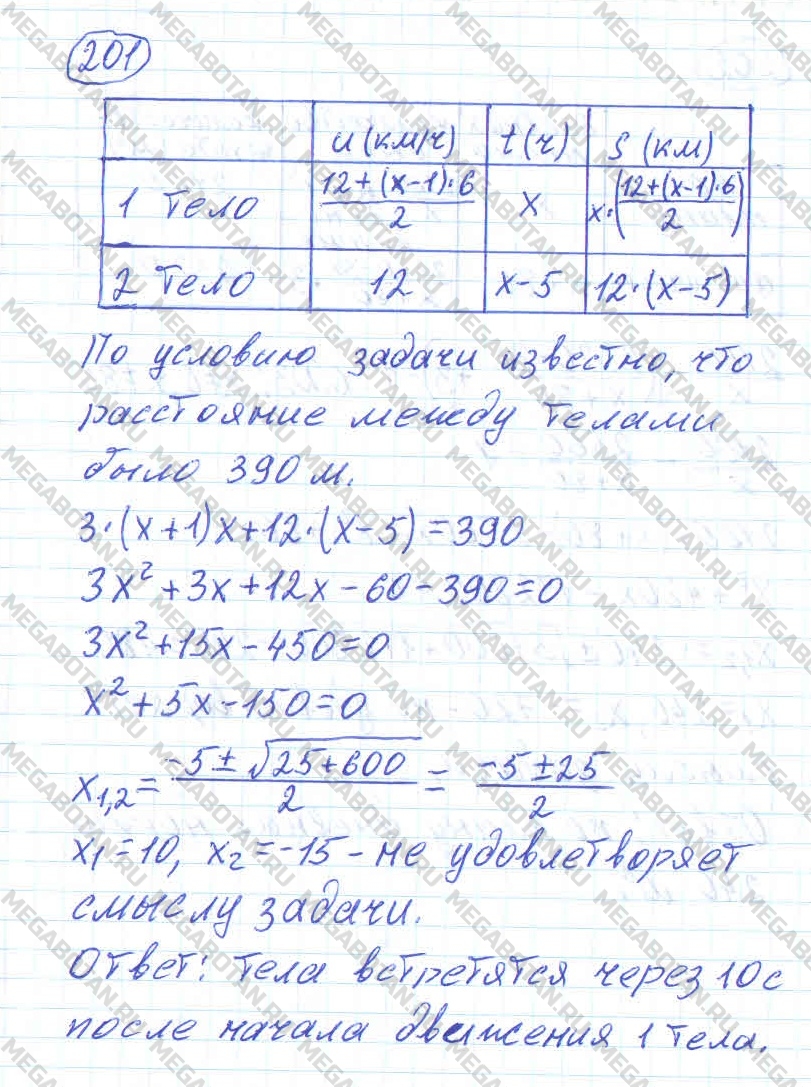 201
u (км/ч) t (ч) S (км)
1 тело (12+(x-1)·6)/2 x x·((12+(x-1)·6)/2)
2 тело 12 x-5 12·(x-5)
По условию задачи известно, что
расстояние между телами
было 390 м.
3·(x+1)x+12·(x-5)=390
3x²+3x+12x-60-390=0
3x²+15x-450=0
x²+5x-150=0
x₁,₂=(-5±√(25+600))/2=(-5±25)/2
x₁=10, x₂=-15 - не удовлетворяет
смыслу задачи.
Ответ: тела встретятся через 10 с
после начала движения 1 тела.
MEGABOTAN.RU